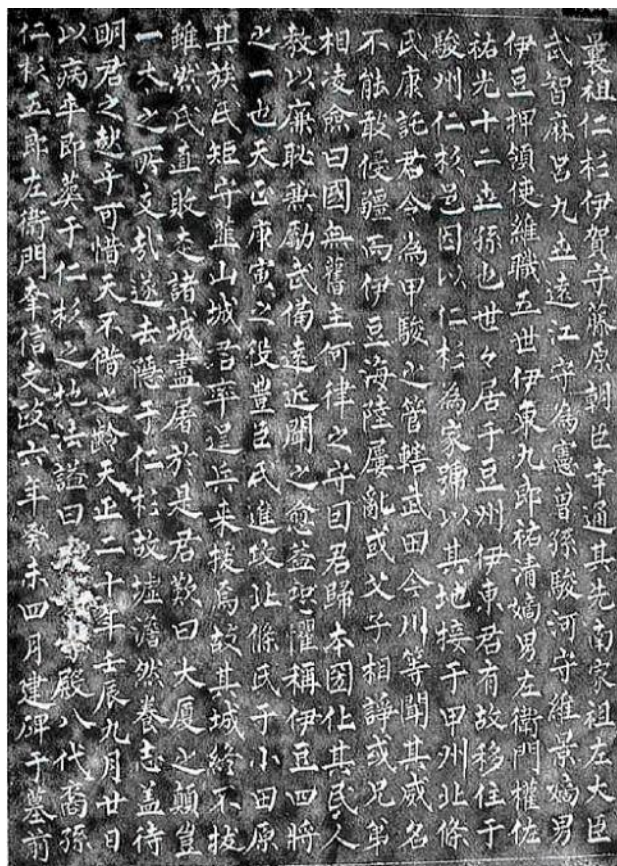 曩祖仁杉伊賀守藤原朝臣幸通其先南家祖左大臣
武智麻呂九世遠江守為憲曽孫駿河守維景嫡男
伊豆押領使維職五世伊東九郎祐清嫡男左衛門権佐
祐光十二世孫也世々居于豆州伊東君有故移住于
駿州仁杉邑因以仁杉為家號以其地接于甲州北條
氏康託君令為甲駿之管轄武田今川等聞其威名
不能敢侵疆而伊豆海陸屢亂或父子相諍或兄弟
相凌僉曰國無舊主何律之守因君歸本國化其民人
教以廉恥無勵武備遠近聞之愈益恐懼稱伊豆四將
之一也天正庚寅之役豊臣氏進攻北條氏于小田原
其族氏矩守韮山城君率逞兵来援焉故其城終不拔
雖然氏直敗走諸城盡屠於是君歎曰大厦之顛豈
一木之所支哉遂去隠于仁杉故墟澹然巻志盖待
明君之起乎可惜天不借之齢天正二十年壬辰九月廿日
以病卒即葬于仁杉之地法謚曰殿八代裔孫
仁杉五郎左衛門幸信文政六年癸未四月建碑于墓前